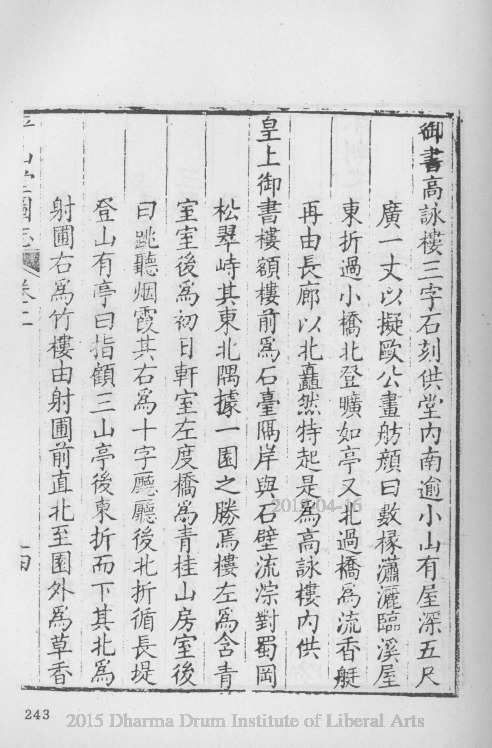 御書高詠樓三字石刻供堂內南逾小山有屋深五尺
廣一丈以擬歐公畫舫顏曰數椽瀟灑臨溪屋
東折過小橋北登曠如亭又北過橋為流香艇
再由長廊以北矗然特起是為高詠樓內供
皇上御書樓額樓前為石臺隔岸與石壁流淙對蜀岡
松翠峙其東北隅據一園之勝焉樓左為含青
室室後為初日軒室左度橋為青桂山房室後
曰跳聽烟霞其右為十字廳廳後北折循長堤
登山有亭曰指顧三山亭後東折而下其北為
射圃右為竹樓由射圃前直北至園外為草香
平山堂圖志
卷二
2012-04-16
243
2015 Dharma Drum Institute of Liberal Arts